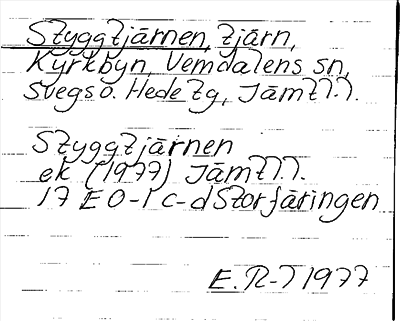 Styggtjärnen, tjärn,
Kyrkbyn, Vemdalens sn,
Svegs o. Hede tg, Jämtl.
Styggtjärnen
ek (1977) Jämtl.
17 E 0-1 c-d Storfäringen
E. R-T 1977